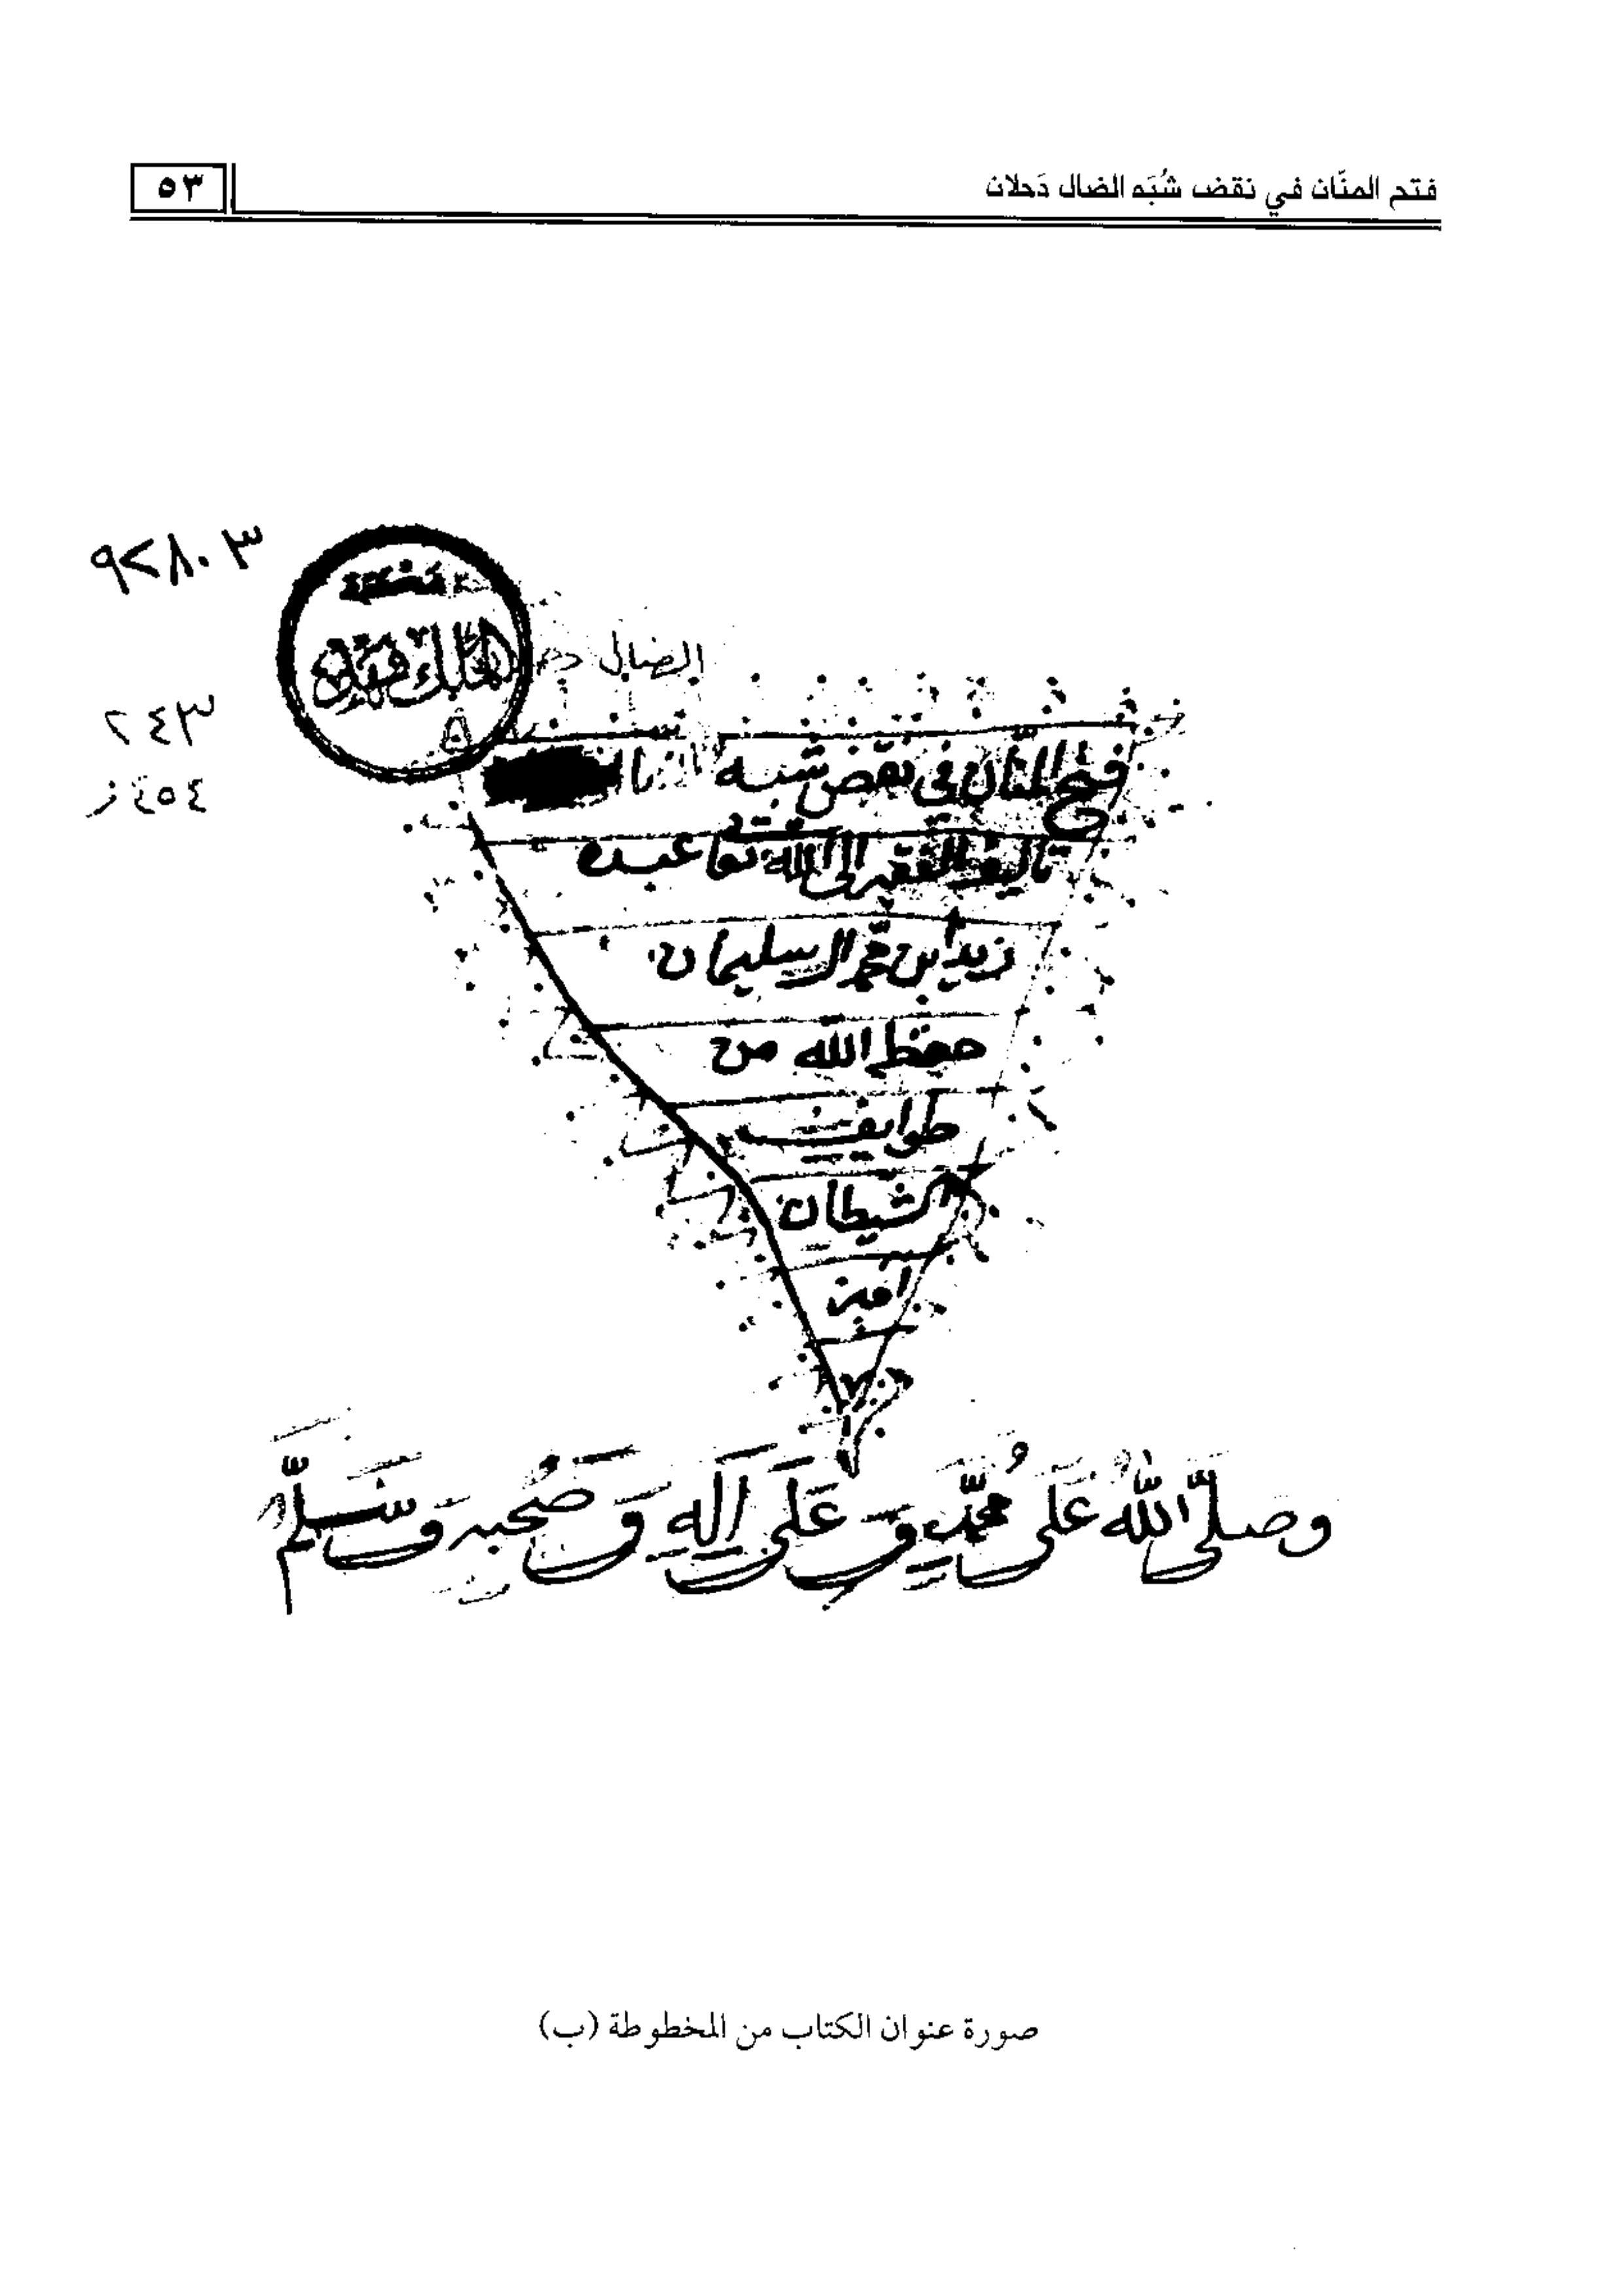 فتح المنّان في نقض شُبَه الضال دَحلان
٥٣
٩٢٨٠٣
الضال
٢٤٣
٤٥٤ ز
فتح المنّان في نقض شبه
تاليف الفقير الى الله تعا عبده
زيد ابن محمد ال سليمان
حفظ الله من
طوايف
الشيطان
امين
وصلّى اللهُ عَلى محمّدٍ وَعَلَى آلِهِ وَصَحبِه وَسَلّم
صورة عنوان الكتاب من المخطوطة (ب)